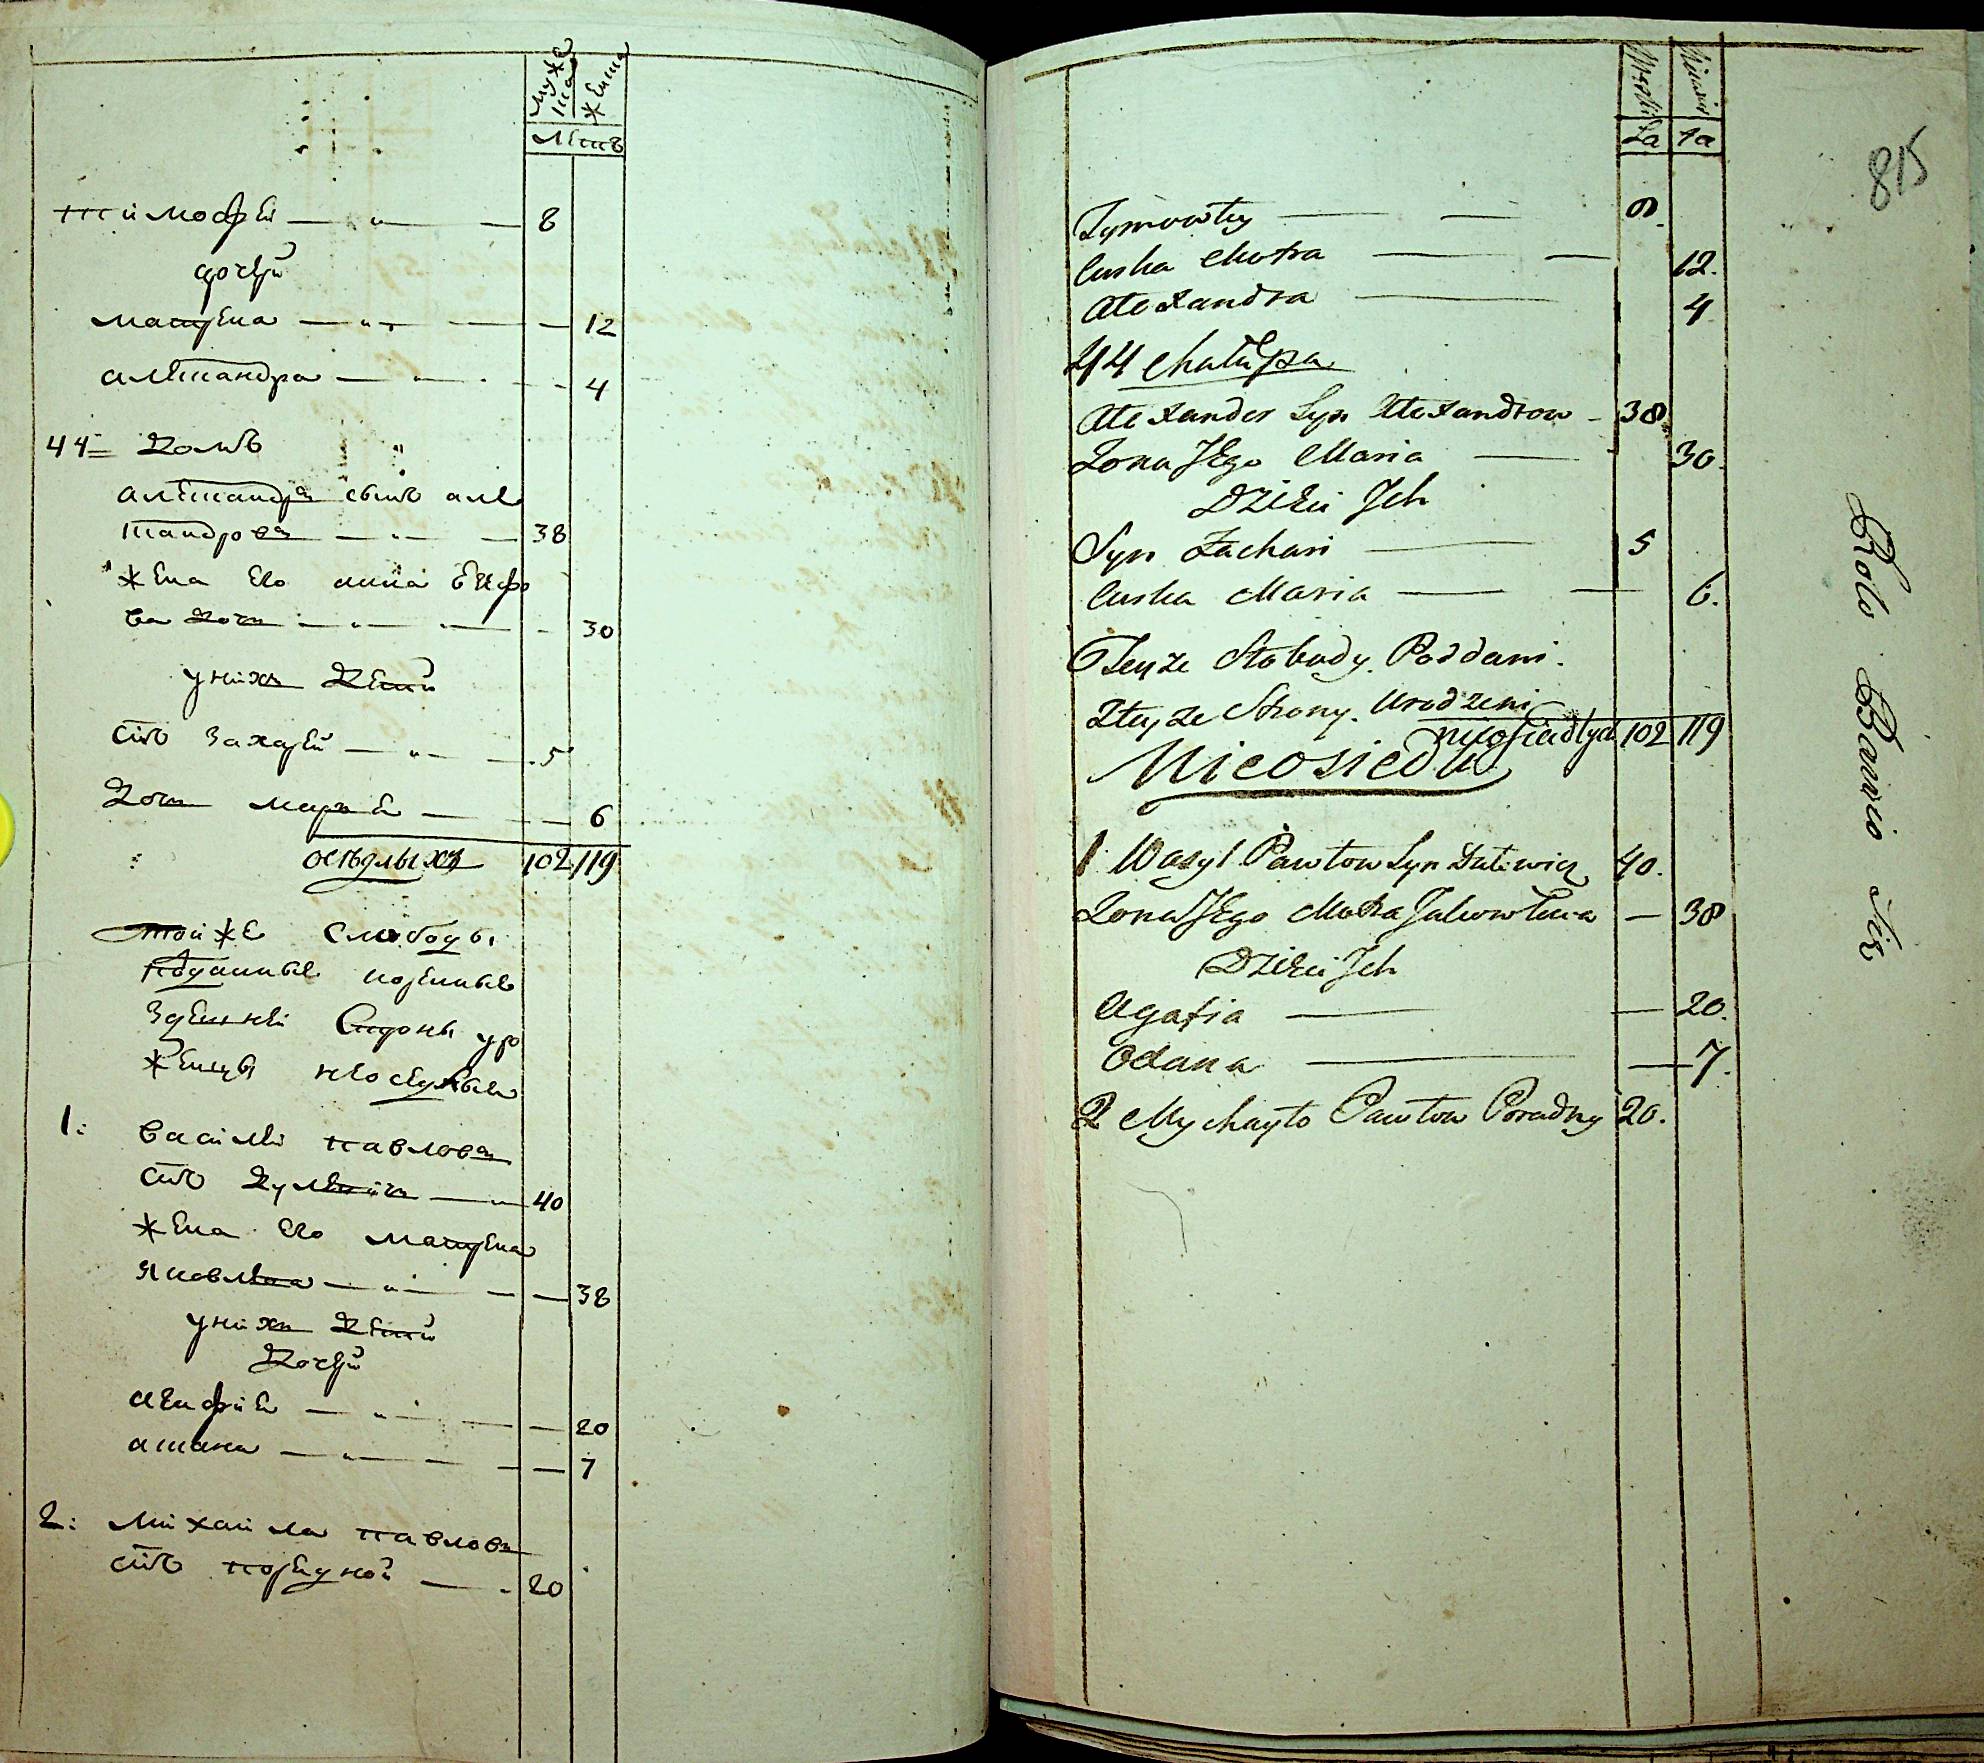 мужеска
женска
лѣтъ
тимофей — „ — 8
дочери
матрена — „ — 12
александра — „ — 4
44 домъ
александръ сынъ але
ксандровъ — „ — 38
жена его анна
ва дочь — „ — 30
у нихъ дѣти
снъ захарей — „ — 5
дочь марья — 6
оседлыхъ 102 119
той же слободы
подданные коренные
здешней стороны уро
женцы неоседлые
1: василей павловъ
снъ — „ 40
жена его матрена
яковлева — „ — 38
у нихъ дѣти
дочери
агафия — „ — 20
аксана — „ — 7
2: михаила павловъ
снъ поредной — 20
815
Męski
Lata
Tymowtey — 8.
Curka Motra — 12.
Alexandra — 4
44 Chałupa
Alexander Syn Alexandrow – 38
Zona Jego Maria — 30.
Dzieci Jch
Syn Zachari — 5
Curka Maria — 6.
Teyze Słobody. Poddani.
Zteyze Strony. Urodzeni
nieosiadłych 102 119
Nieosiedli
1 Wasyl Pawłow Syn 40.
Zona Jego Motra Jakowlewa — 38
Dzieci Jch
Agafia — 20.
Oxana — 7.
2 Mychayło Pawłow Poradny 20.